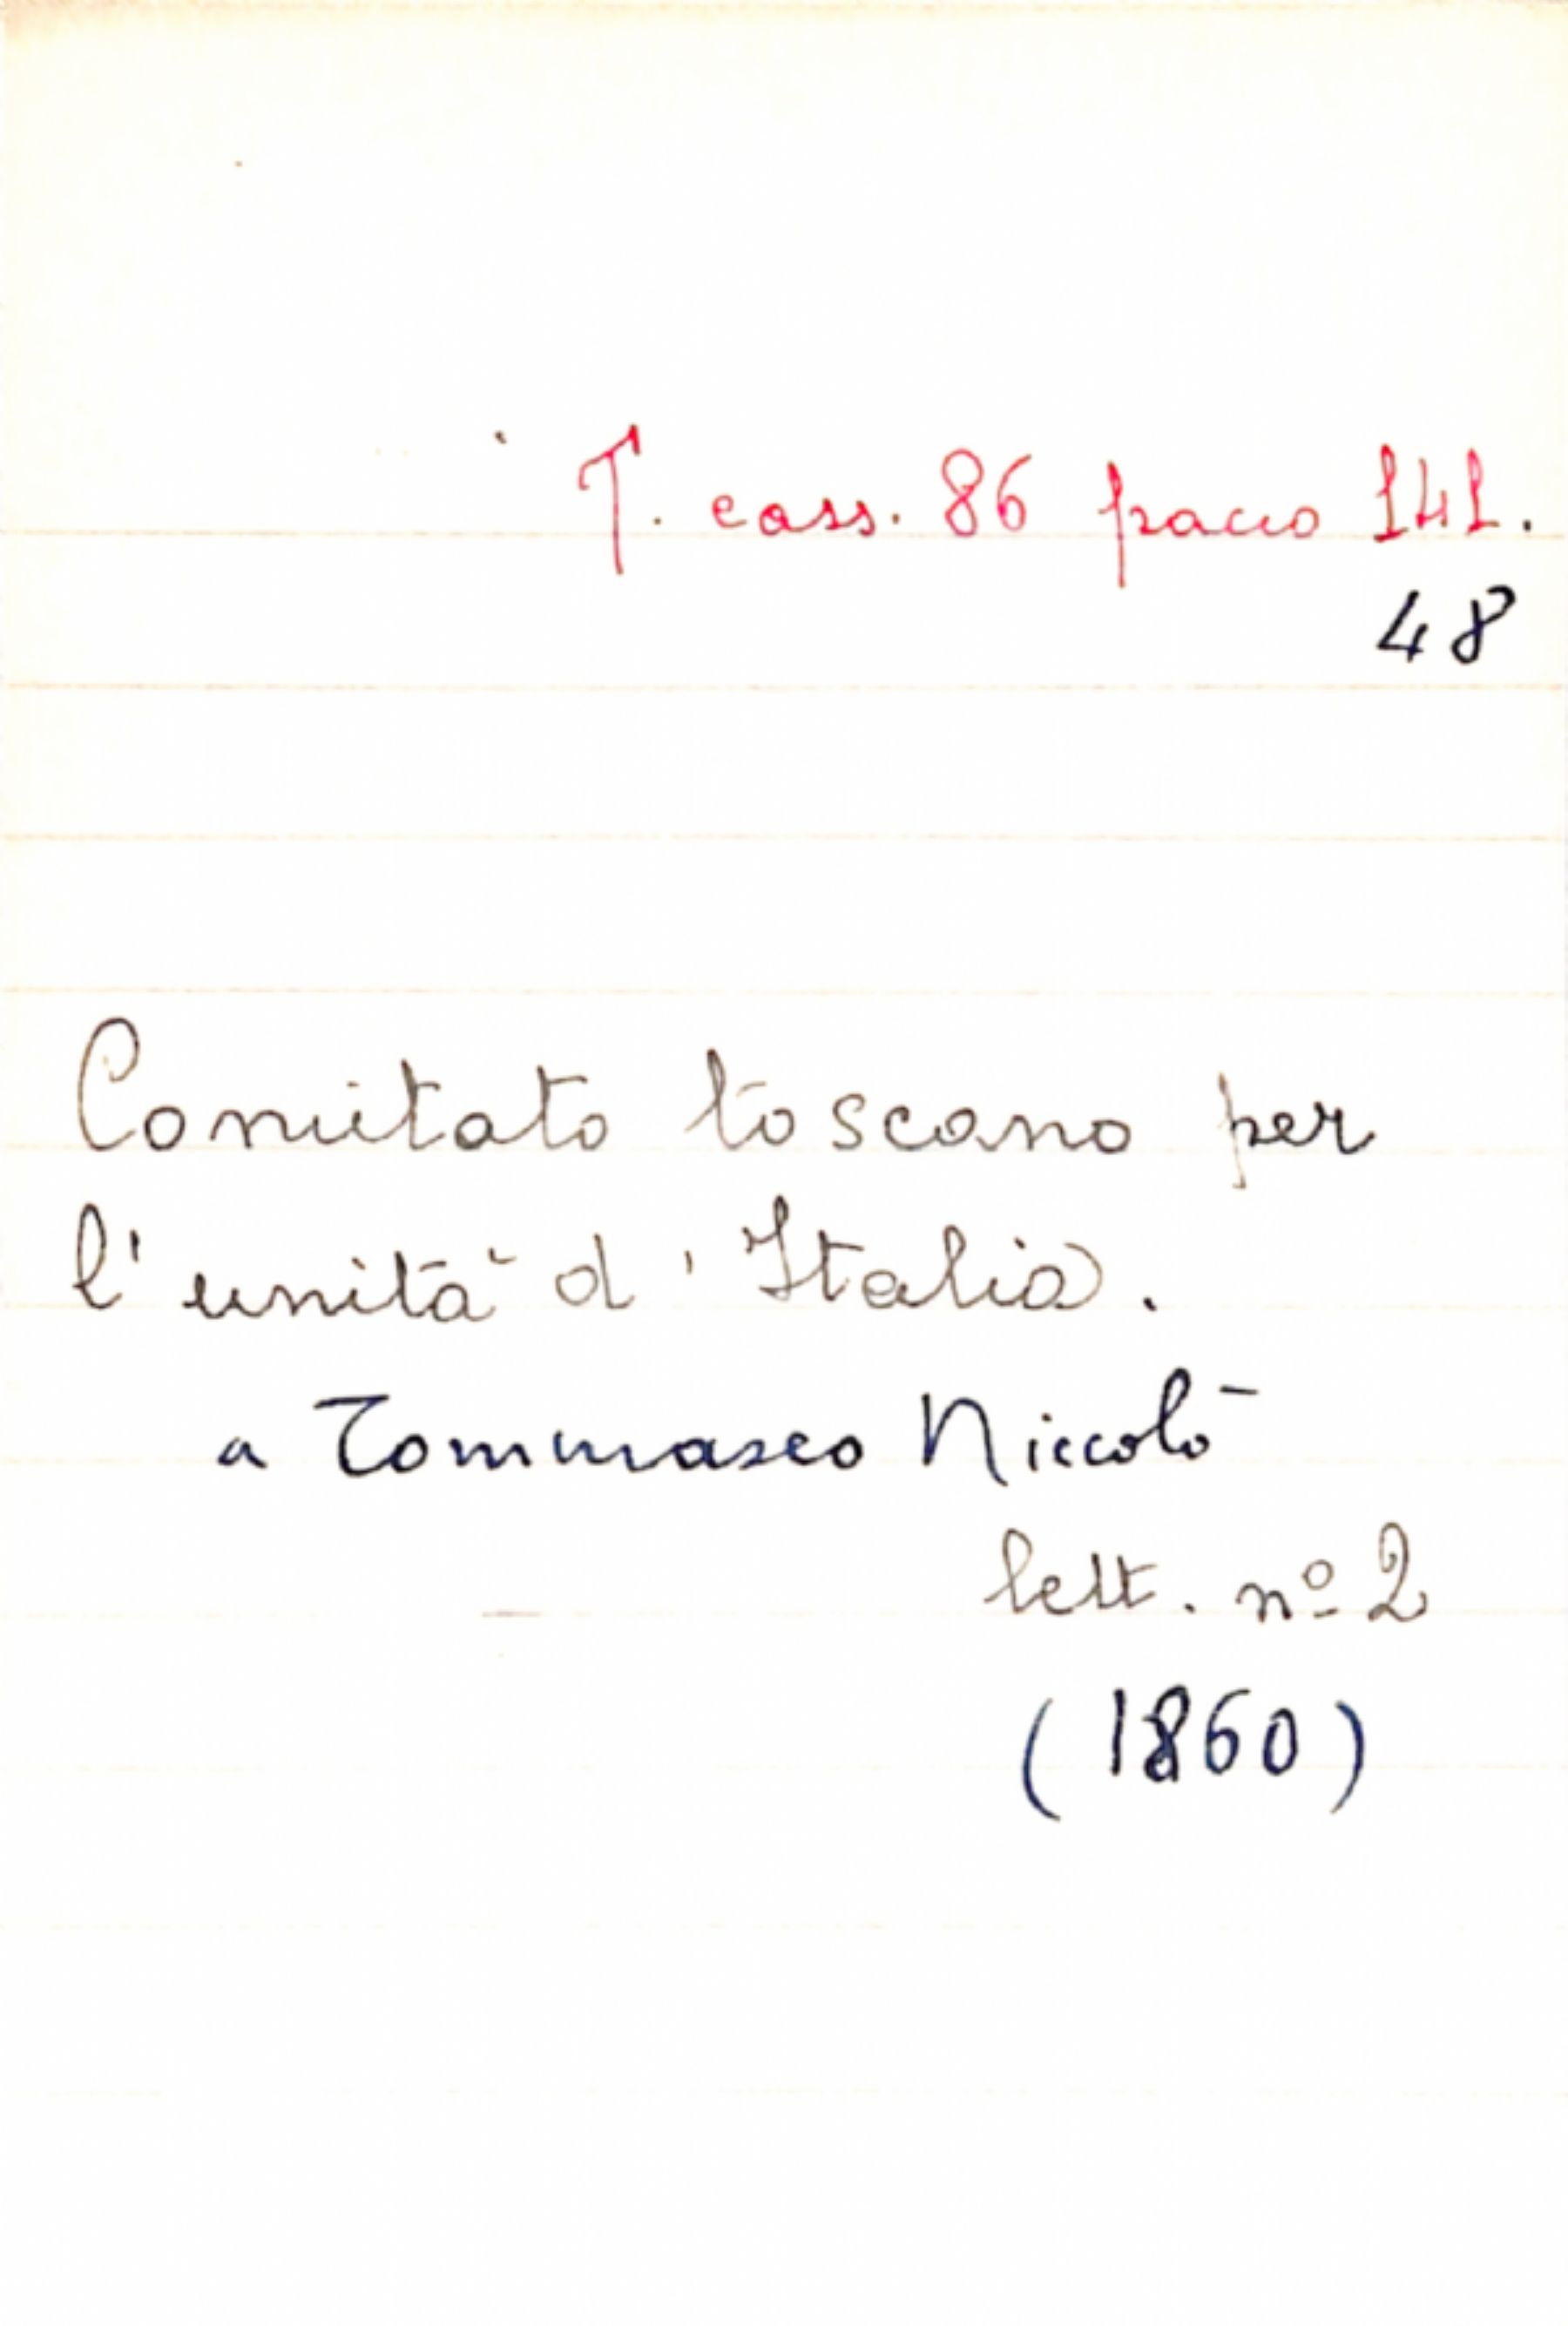 T. cass. 86 pacco 141.
48
Comitato toscano per
l'unità d'Italia.
a Tommaseo Niccolò
lett. nº 2
(1860)